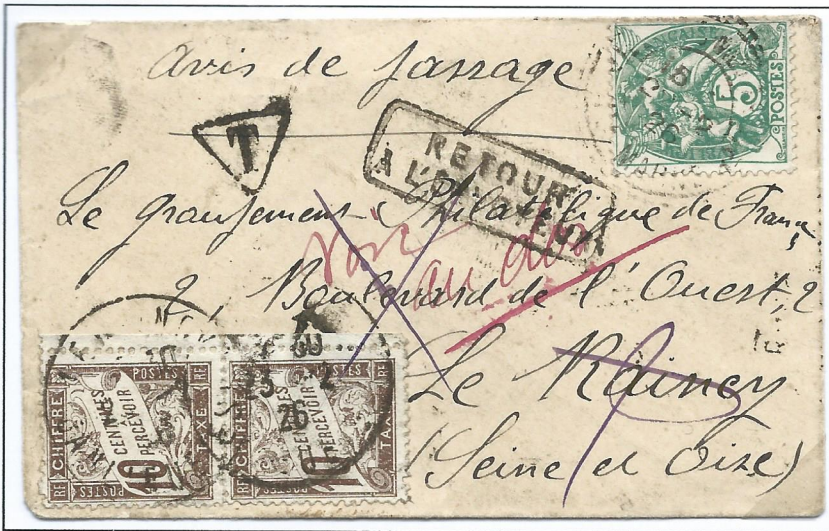 Avis de passage
5
POSTES
T
RETOUR
À L'ENVOYEUR
Le groupement Philatélique de France
voir
au dos
2, Boulevard de l'Ouest, 2
Le Raincy
(Seine et Oise)
POSTES
RF
CHIFFRE
TAXE
10 CENTIMES
À
PERCEVOIR
POSTES
RF
POSTES
RF
CHIFFRE
TAXE
10 CENTIMES
À
PERCEVOIR
POSTES
RF
25